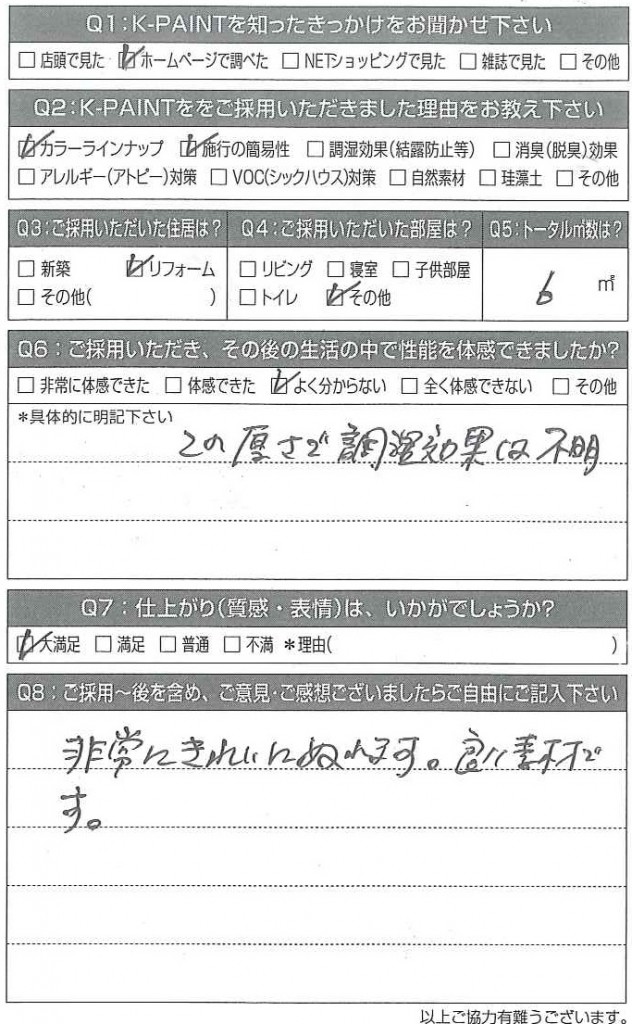 Q1:K-PAINTを知ったきっかけをお聞かせ下さい
□ 店頭で見た ☑ ホームページで調べた □ NETショッピングで見た □ 雑誌で見た □ その他
Q2:K-PAINTををご採用いただきました理由をお教え下さい
☑ カラーラインナップ ☑ 施行の簡易性 □ 調湿効果(結露防止等) □ 消臭(脱臭)効果
□ アレルギー(アトピー)対策 □ VOC(シックハウス)対策 □ 自然素材 □ 珪藻土 □ その他
Q3:ご採用いただいた住居は? Q4:ご採用いただいた部屋は? Q5:トータル㎡数は?
□ 新築 ☑ リフォーム □ リビング □ 寝室 □ 子供部屋 6 ㎡
□ その他( ) □ トイレ ☑ その他
Q6:ご採用いただき、その後の生活の中で性能を体感できましたか?
□ 非常に体感できた □ 体感できた ☑ よく分からない □ 全く体感できない □ その他
*具体的に明記下さい
この厚さで調湿効果は不明
Q7:仕上がり(質感・表情)は、いかがでしょうか?
☑ 大満足 □ 満足 □ 普通 □ 不満 *理由( )
Q8:ご採用~後を含め、ご意見・ご感想ございましたらご自由にご記入下さい
非常にきれいにぬれます。良い素材で
す。
以上ご協力有難うございます。